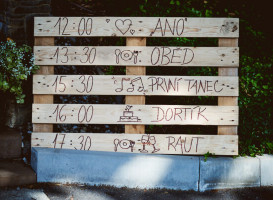 12:00 ANO
13:30 OBĚD
15:30 PRVNÍ TANEC
16:00 DORTÍK
17:30 RAUT